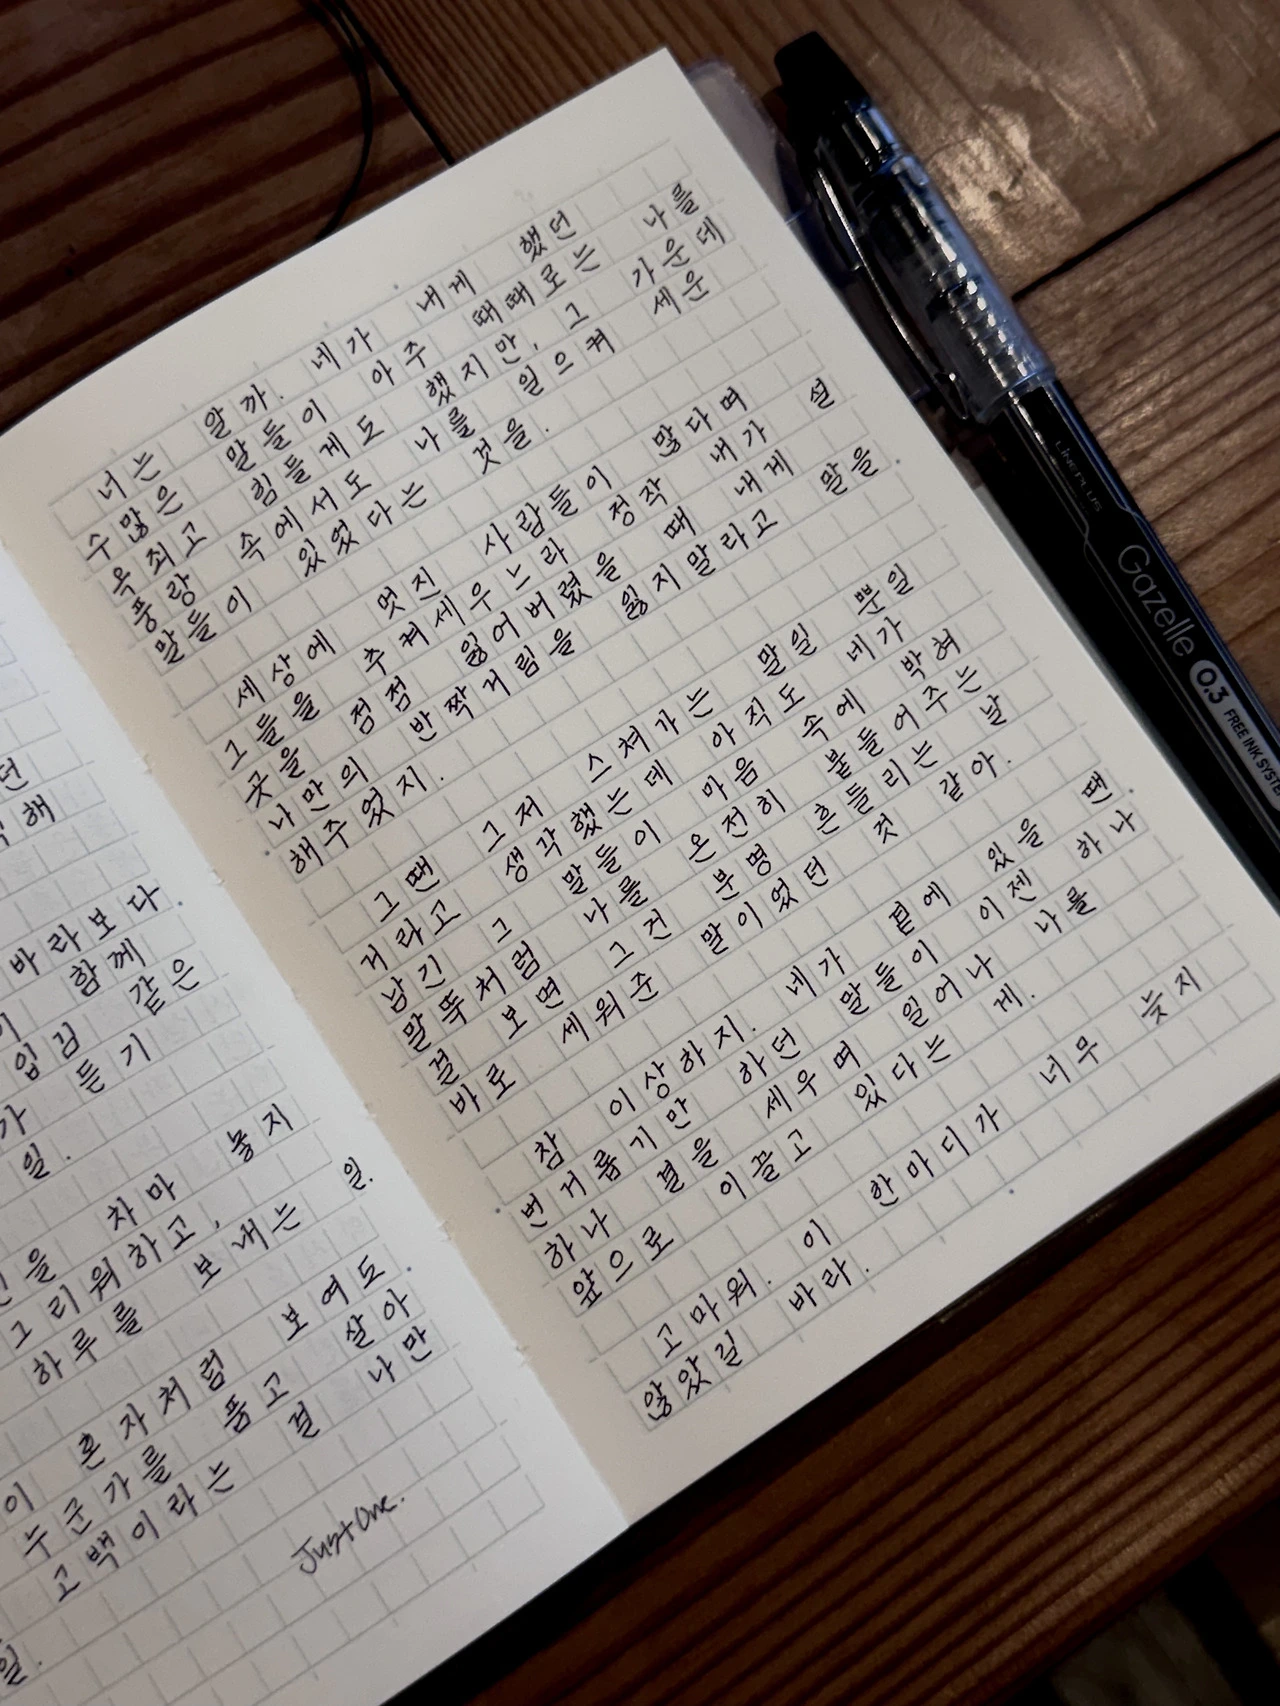 던
해
바라보다.
이 함께
입김 같은
가 듣기
일.
을 차마 놓지
그리워하고,
하루를 보내는 일.
이 혼자처럼 보여도
누군가를 품고 살아
고백이라는 걸 나만
일.
Just One.
너는 알까. 네가 내게 했던
수많은 말들이 아주 때때로는 나를
옥죄고 힘들게도 했지만, 그 가운데
풍랑 속에서도 나를 일으켜 세운
말들이 있었다는 것을.
세상에 멋진 사람들이 많다며
그들을 추켜세우느라 정작 내가 설
곳을 점점 잃어버렸을 때 내게
나만의 반짝거림을 잃지말라고 말을
해주었지.
그땐 그저 스쳐가는 말일 뿐일
거라고 생각했는데 아직도 네가
남긴 그 말들이 마음 속에 박혀
말뚝처럼 나를 온전히 붙들어주는
걸 보면 그건 분명 흔들리는 날
바로 세워준 말이었던 것 같아.
참 이상하지. 네가 곁에 있을 땐
번거롭기만 하던 말들이 이젠 하나
하나 결을 세우며 일어나 나를
앞으로 이끌고 있다는 게.
고마워. 이 한마디가 너무 늦지
않았길 바라.
LINEPLUS
Gazelle 0.3 FREE INK SYSTE